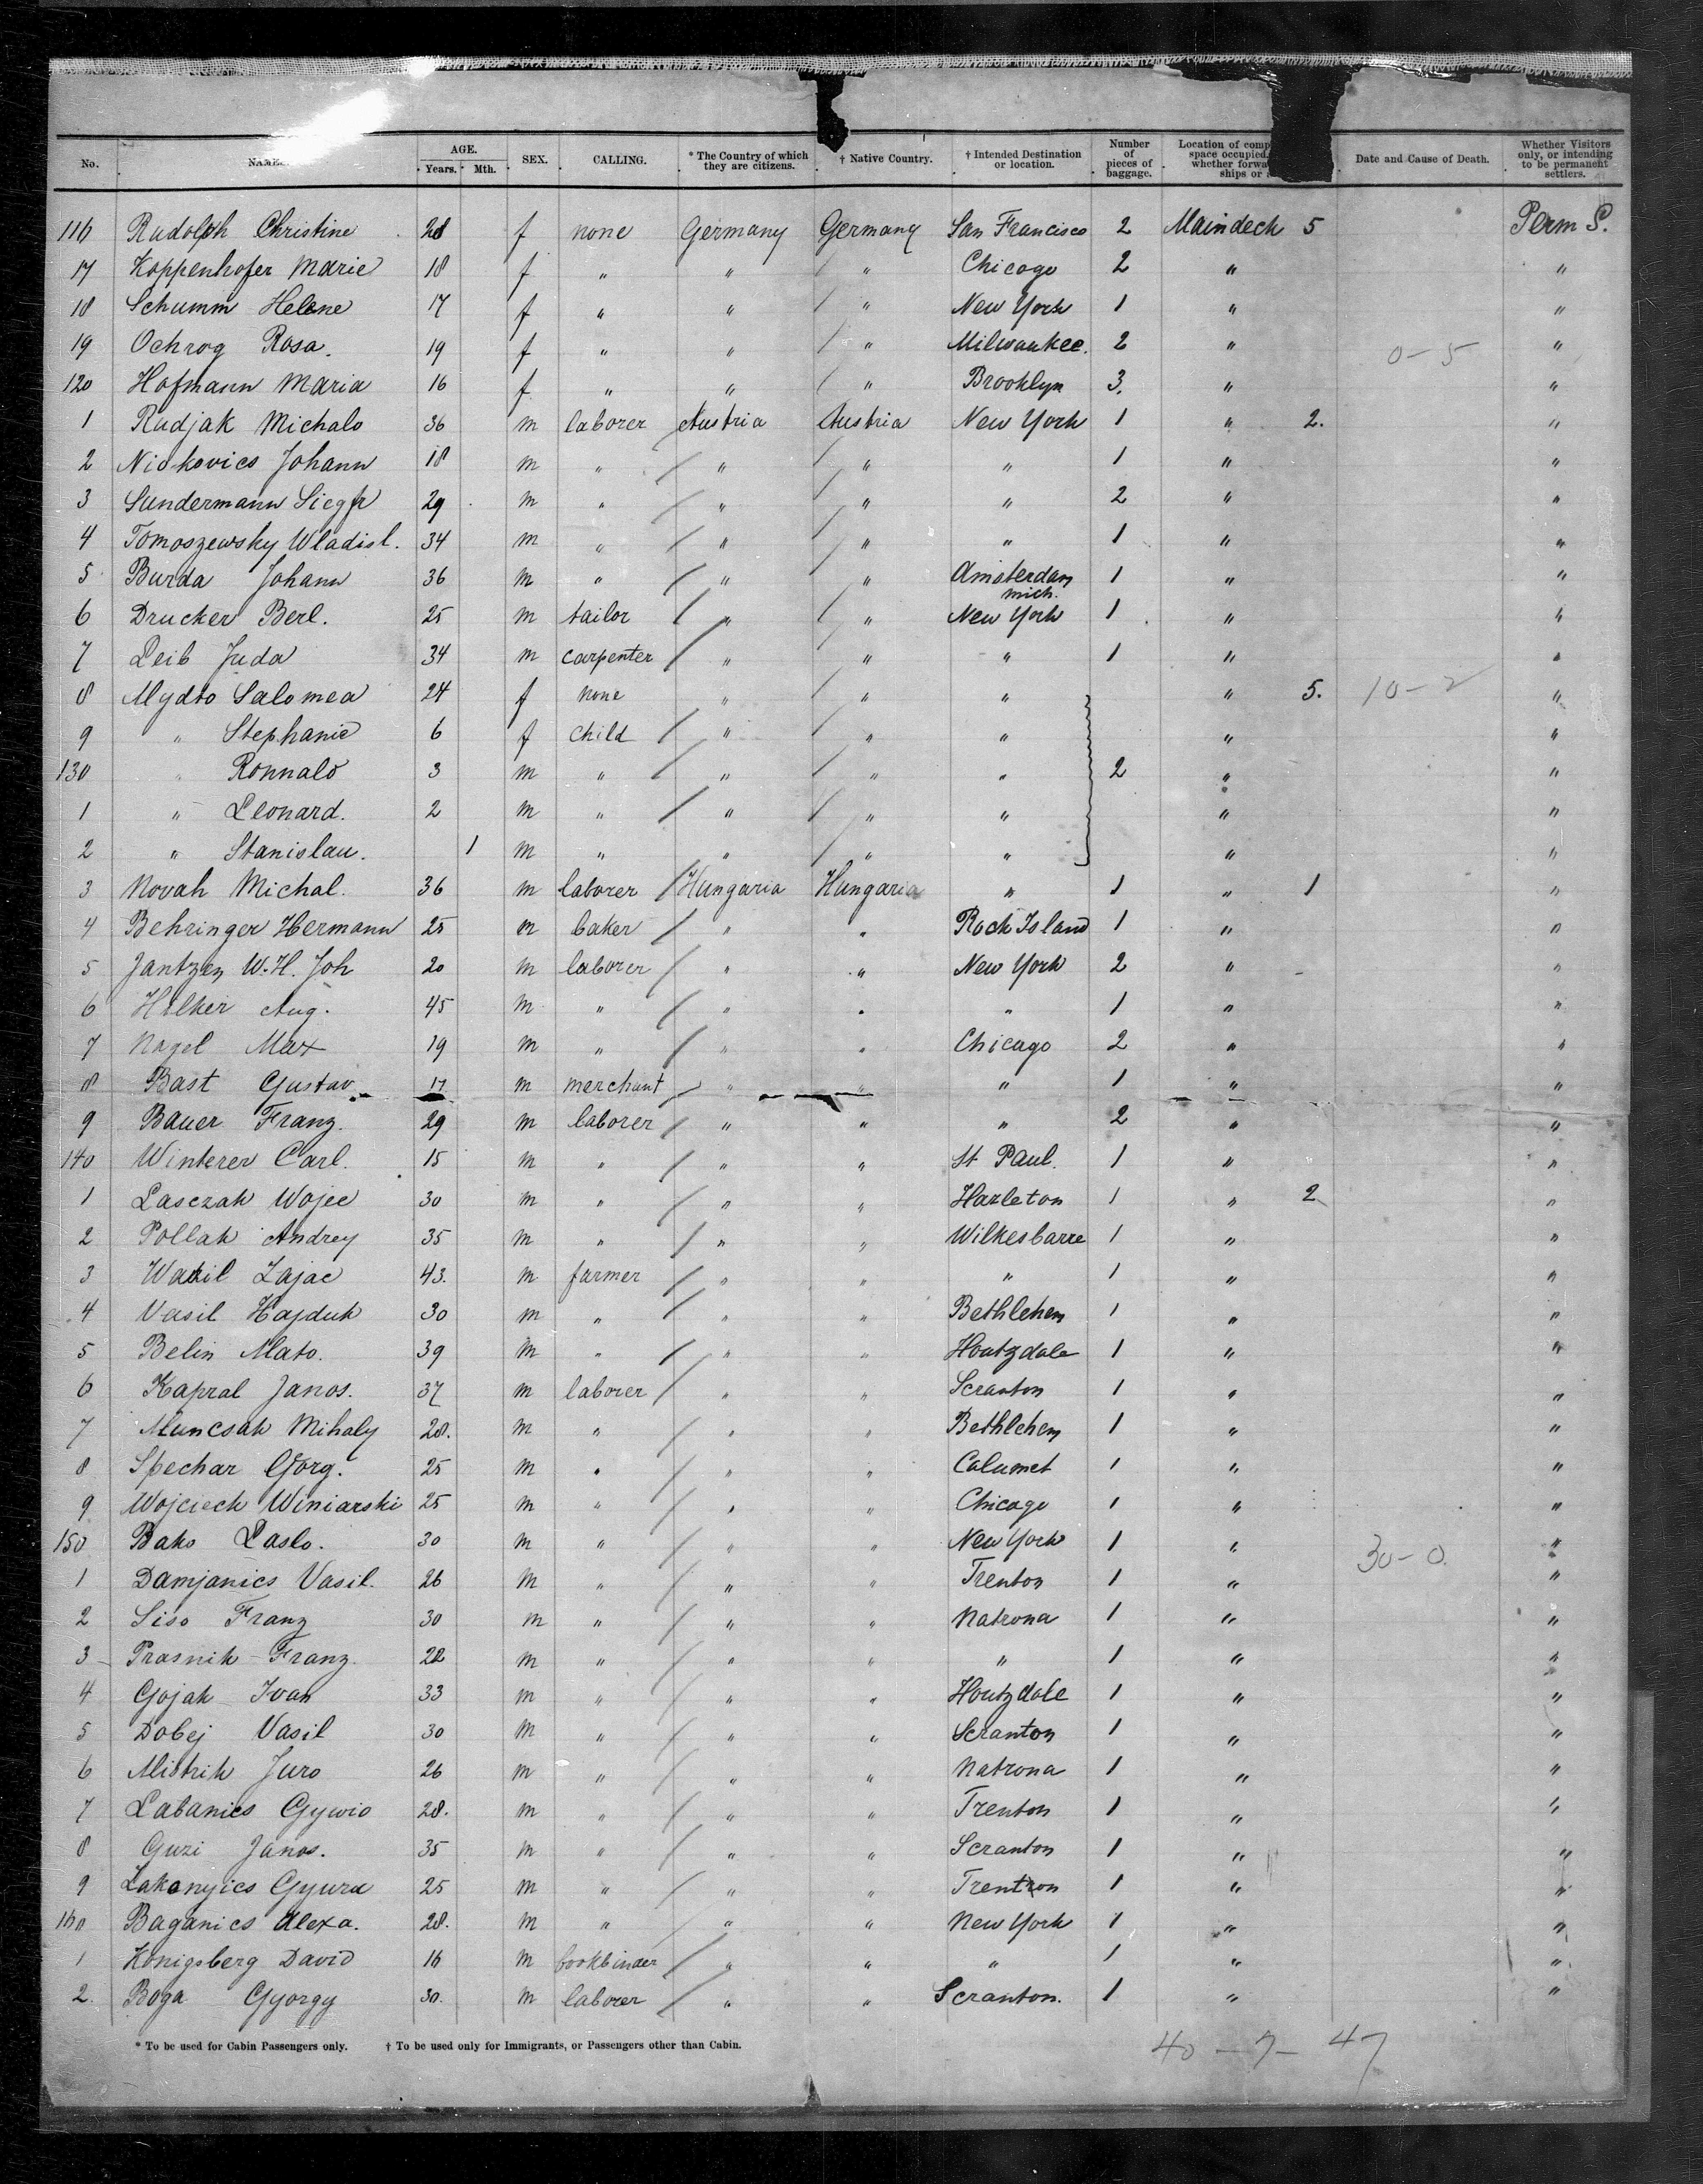 No. NAME. AGE. Years. Mth. SEX. CALLING. * The Country of which they are citizens. † Native Country. † Intended Destination or location. Number of pieces of baggage. Location of comp space occupied. whether forwa ships or Date and Cause of Death. Whether Visitors only, or intending to be permanent settlers.
116 Rudolph Christine 28 f none Germany Germany San Francisco 2 Maindeck 5 Perm S.
17 Koppenhofer Marie 18 f " " " Chicago 2 " "
18 Schumm Helene 17 f " " " New York 1 " "
19 Ochrog Rosa. 19 f " " " Milwaukee. 2 " 0-5 "
120 Hofmann Maria 16 f " " " Brooklyn 3. " "
1 Rudjak Michalo 36 m laborer Austria Austria New York 1 " 2. "
2 Niskovics Johann 18 m " " " " 1 " "
3 Sundermann Siegfr 29 m " " " " 2 " "
4 Tomoszewsky Wladisl. 34 m " " " " 1 " "
5 Burda Johann 36 m " " " Amsterdam mich. 1 " "
6 Drucker Berl. 25 m tailor " " New York 1 " "
7 Leib Juda 34 m carpenter " " " 1 " "
8 Mydto Salomea 24 f none " " " " 5. 10-2 "
9 " Stephanie 6 f child " " " " "
130 " Ronnald 3 m " " " " 2 " "
1 " Leonard. 2 m " " " " " "
2 " Stanislau. 1 m " " " " " "
3 Novak Michal. 36 m laborer Hungaria Hungaria " 1 " 1 "
4 Behringer Hermann 25 m baker " " Rock Island 1 " "
5 Jantzen W. H. Joh 20 m laborer " " New York 2 " "
6 Hilker Aug. 45 m " " " " 1 " "
7 Nagel Max 19 m " " " Chicago 2 " "
8 Bast Gustav 17 m merchant " " " 1 " "
9 Bauer Franz. 29 m laborer " " " 2 " "
140 Winterer Carl. 15 m " " " St Paul. 1 " "
1 Lasczak Wojec 30 m " " " Hazleton 1 " 2 "
2 Pollak Andrey 35 m " " " Wilkesbarre 1 " "
3 Wasil Zajac 43. m farmer " " " 1 " "
4 Vasil Hajduk 30 m " " " Bethlehem 1 " "
5 Belin Mato. 39 m " " " Houtzdale 1 " "
6 Kapral Janos. 37 m laborer " " Scranton 1 " "
7 Muncsak Mihaly 28. m " " " Bethlehem 1 " "
8 Spechar Görg. 25 m " " " Calumet 1 " "
9 Wojciech Winiarski 25 m " " " Chicago 1 " "
150 Bako Laslo. 30 m " " " New York 1 " 30-0. "
1 Damjanics Vasil. 26 m " " " Trenton 1 " "
2 Siso Franz 30 m " " " Natrona 1 " "
3 Prasnik Franz. 22 m " " " " 1 " "
4 Gojak Ivan 33 m " " " Houtzdale 1 " "
5 Dobej Vasil 30 m " " " Scranton 1 " "
6 Mistrik Juro 26 m " " " Natrona 1 " "
7 Labanics Gywio 28. m " " " Trenton 1 " "
8 Guzi Janos. 35 m " " " Scranton 1 " "
9 Lakanyics Gyura 25 m " " " Trenton 1 " "
160 Baganics Alexa. 28. m " " " New York 1 " "
1 Königsberg David 16 m bookbinder " " " 1 " "
2. Boga Gyorgy 30. m laborer " " Scranton. 1 " "
* To be used for Cabin Passengers only. † To be used only for Immigrants, or Passengers other than Cabin.
40 - 7 - 47